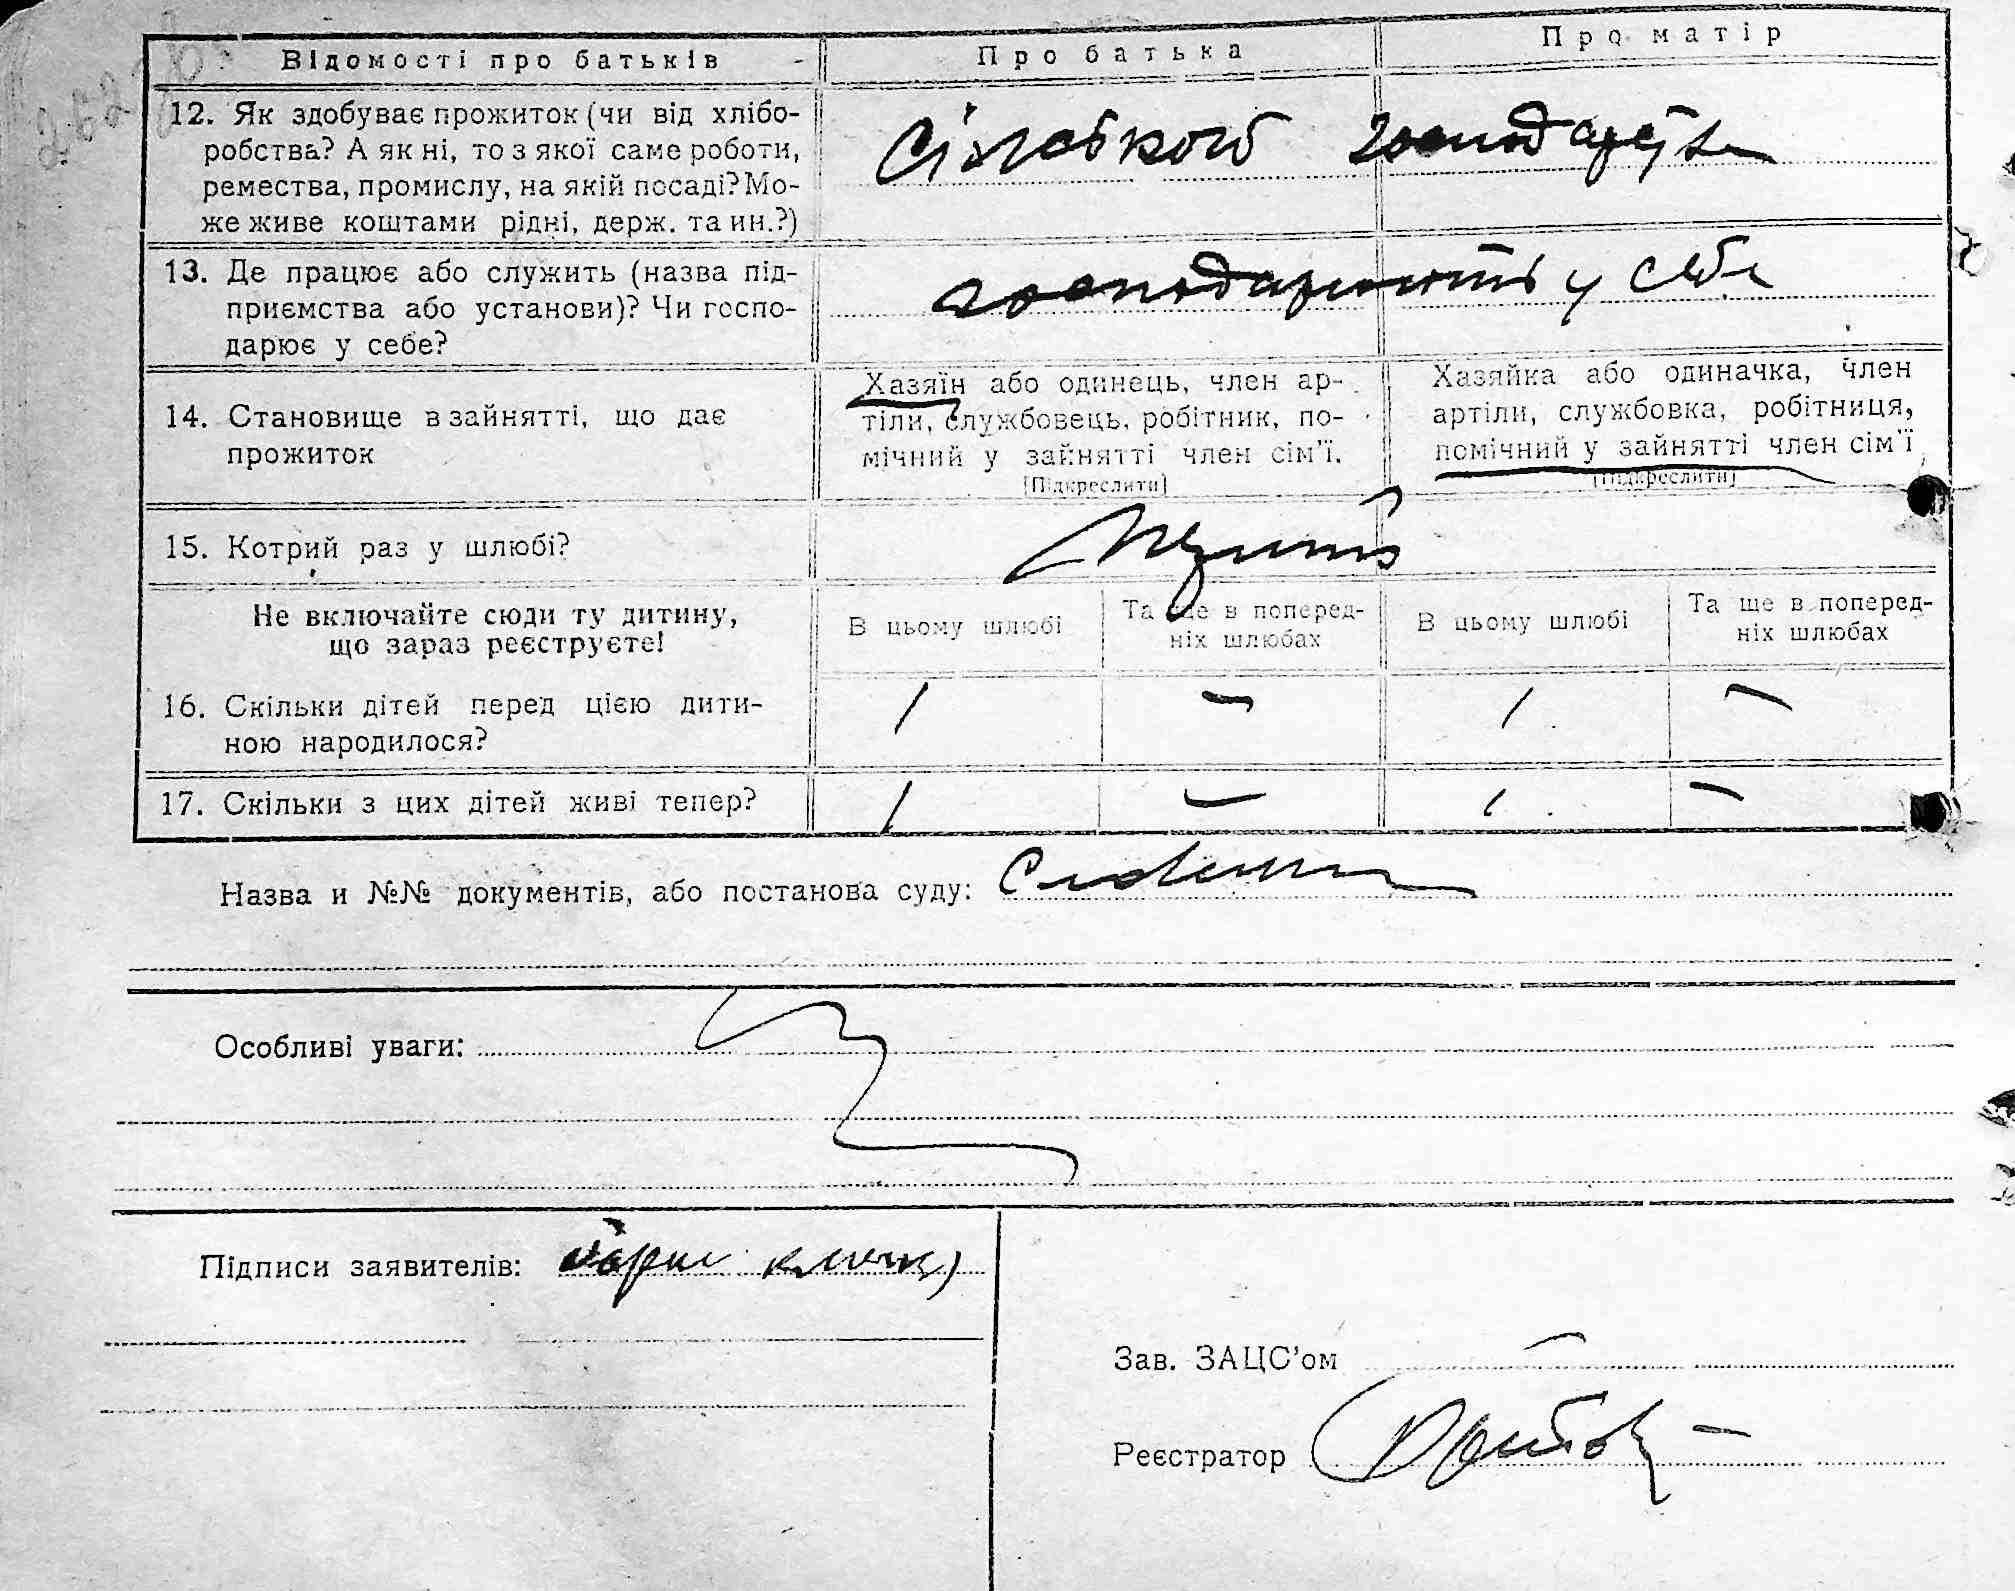 Відомості про батьків
Про батька
Про матір
12. Як здобуває прожиток (чи від хлібо-
робства? А як ні, то з якої саме роботи,
ремества, промислу, на якій посаді? Мо-
же живе коштами рідні, держ. та ин.?)
Сільського господарства
13. Де працює або служить (назва під-
приємства або установи)? Чи госпо-
дарює у себе?
господарюють у себе
14. Становище в зайнятті, що дає
прожиток
Хазяїн або одинець, член ар-
тіли, службовець, робітник, по-
мічний у зайнятті член сім'ї.
[Підкреслити]
Хазяйка або одиначка, член
артіли, службовка, робітниця,
помічний у зайнятті член сім'ї
[Підкреслити]
15. Котрий раз у шлюбі?
Не включайте сюди ту дитину,
що зараз реєструєте!
В цьому шлюбі
Та ще в поперед-
ніх шлюбах
В цьому шлюбі
Та ще в поперед-
ніх шлюбах
16. Скільки дітей перед цією дити-
ною народилося?
1 – 1 –
17. Скільки з цих дітей живі тепер?
1 – 1 –
Назва и №№ документів, або постанова суду:
Особливі уваги:
Підписи заявителів:
Зав. ЗАЦС'ом
Реєстратор